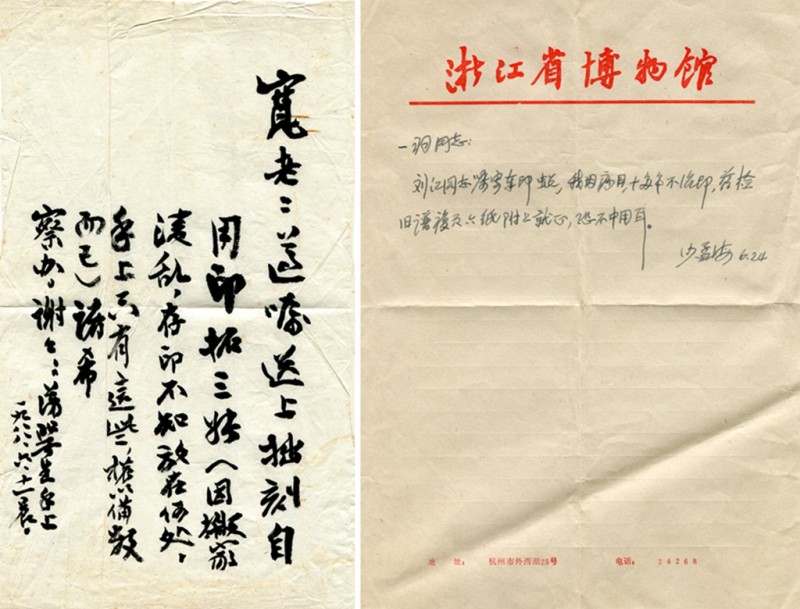 寬老：遵嘱送上拙刻自
用印拓三帋（因搬家
淩乱，存印不知放在何处，
手上只有這些，權以備数
而已）請希
察如，謝々：
手上
一九八八、六、十一晨。
浙江省博物館
同志：
刘江同志嘱寄车印蜕，我因病目，十多年不治印，兹检
旧谱复二六纸附上就正，恐不中用耳。
沙孟海 6.24
地 址： 杭州市外西湖25号 电话： 24268